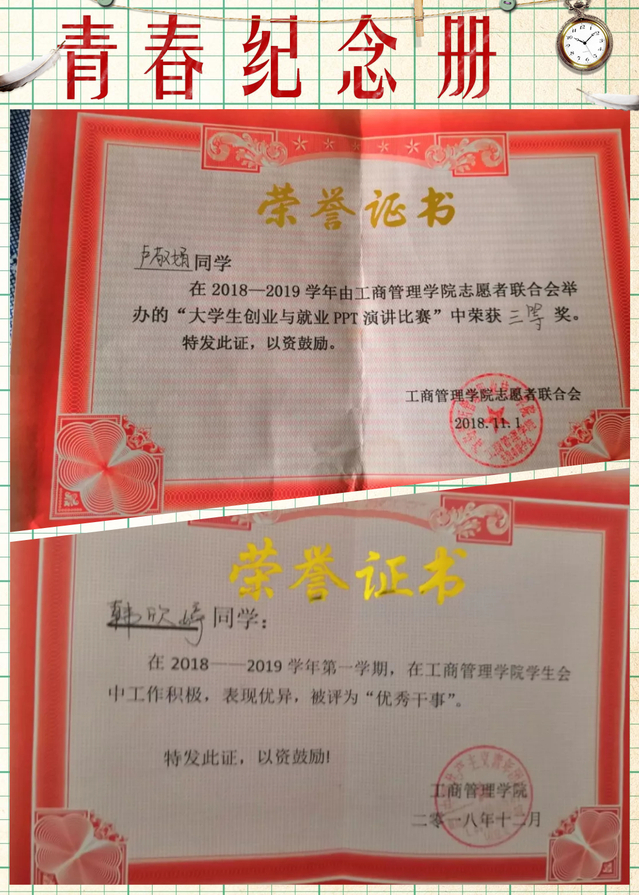 青春纪念册
荣誉证书
卢敬娟同学
在2018—2019学年由工商管理学院志愿者联合会举
办的“大学生创业与就业PPT演讲比赛”中荣获三等奖。
特发此证，以资鼓励。
工商管理学院志愿者联合会
2018.11.1
荣誉证书
韩欣婷同学：
在2018——2019学年第一学期，在工商管理学院学生会
中工作积极，表现优异，被评为“优秀干事”。
特发此证，以资鼓励!
工商管理学院
二零一八年十二月